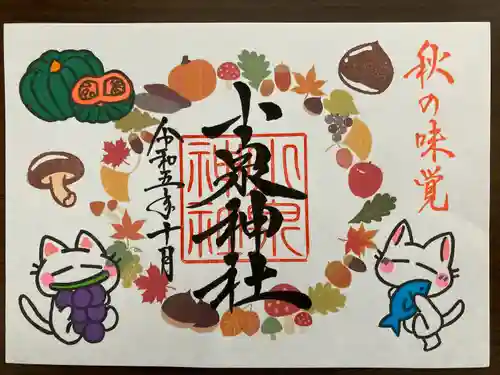 秋の味覚
小泉神社
小泉
神社
令和五年十月